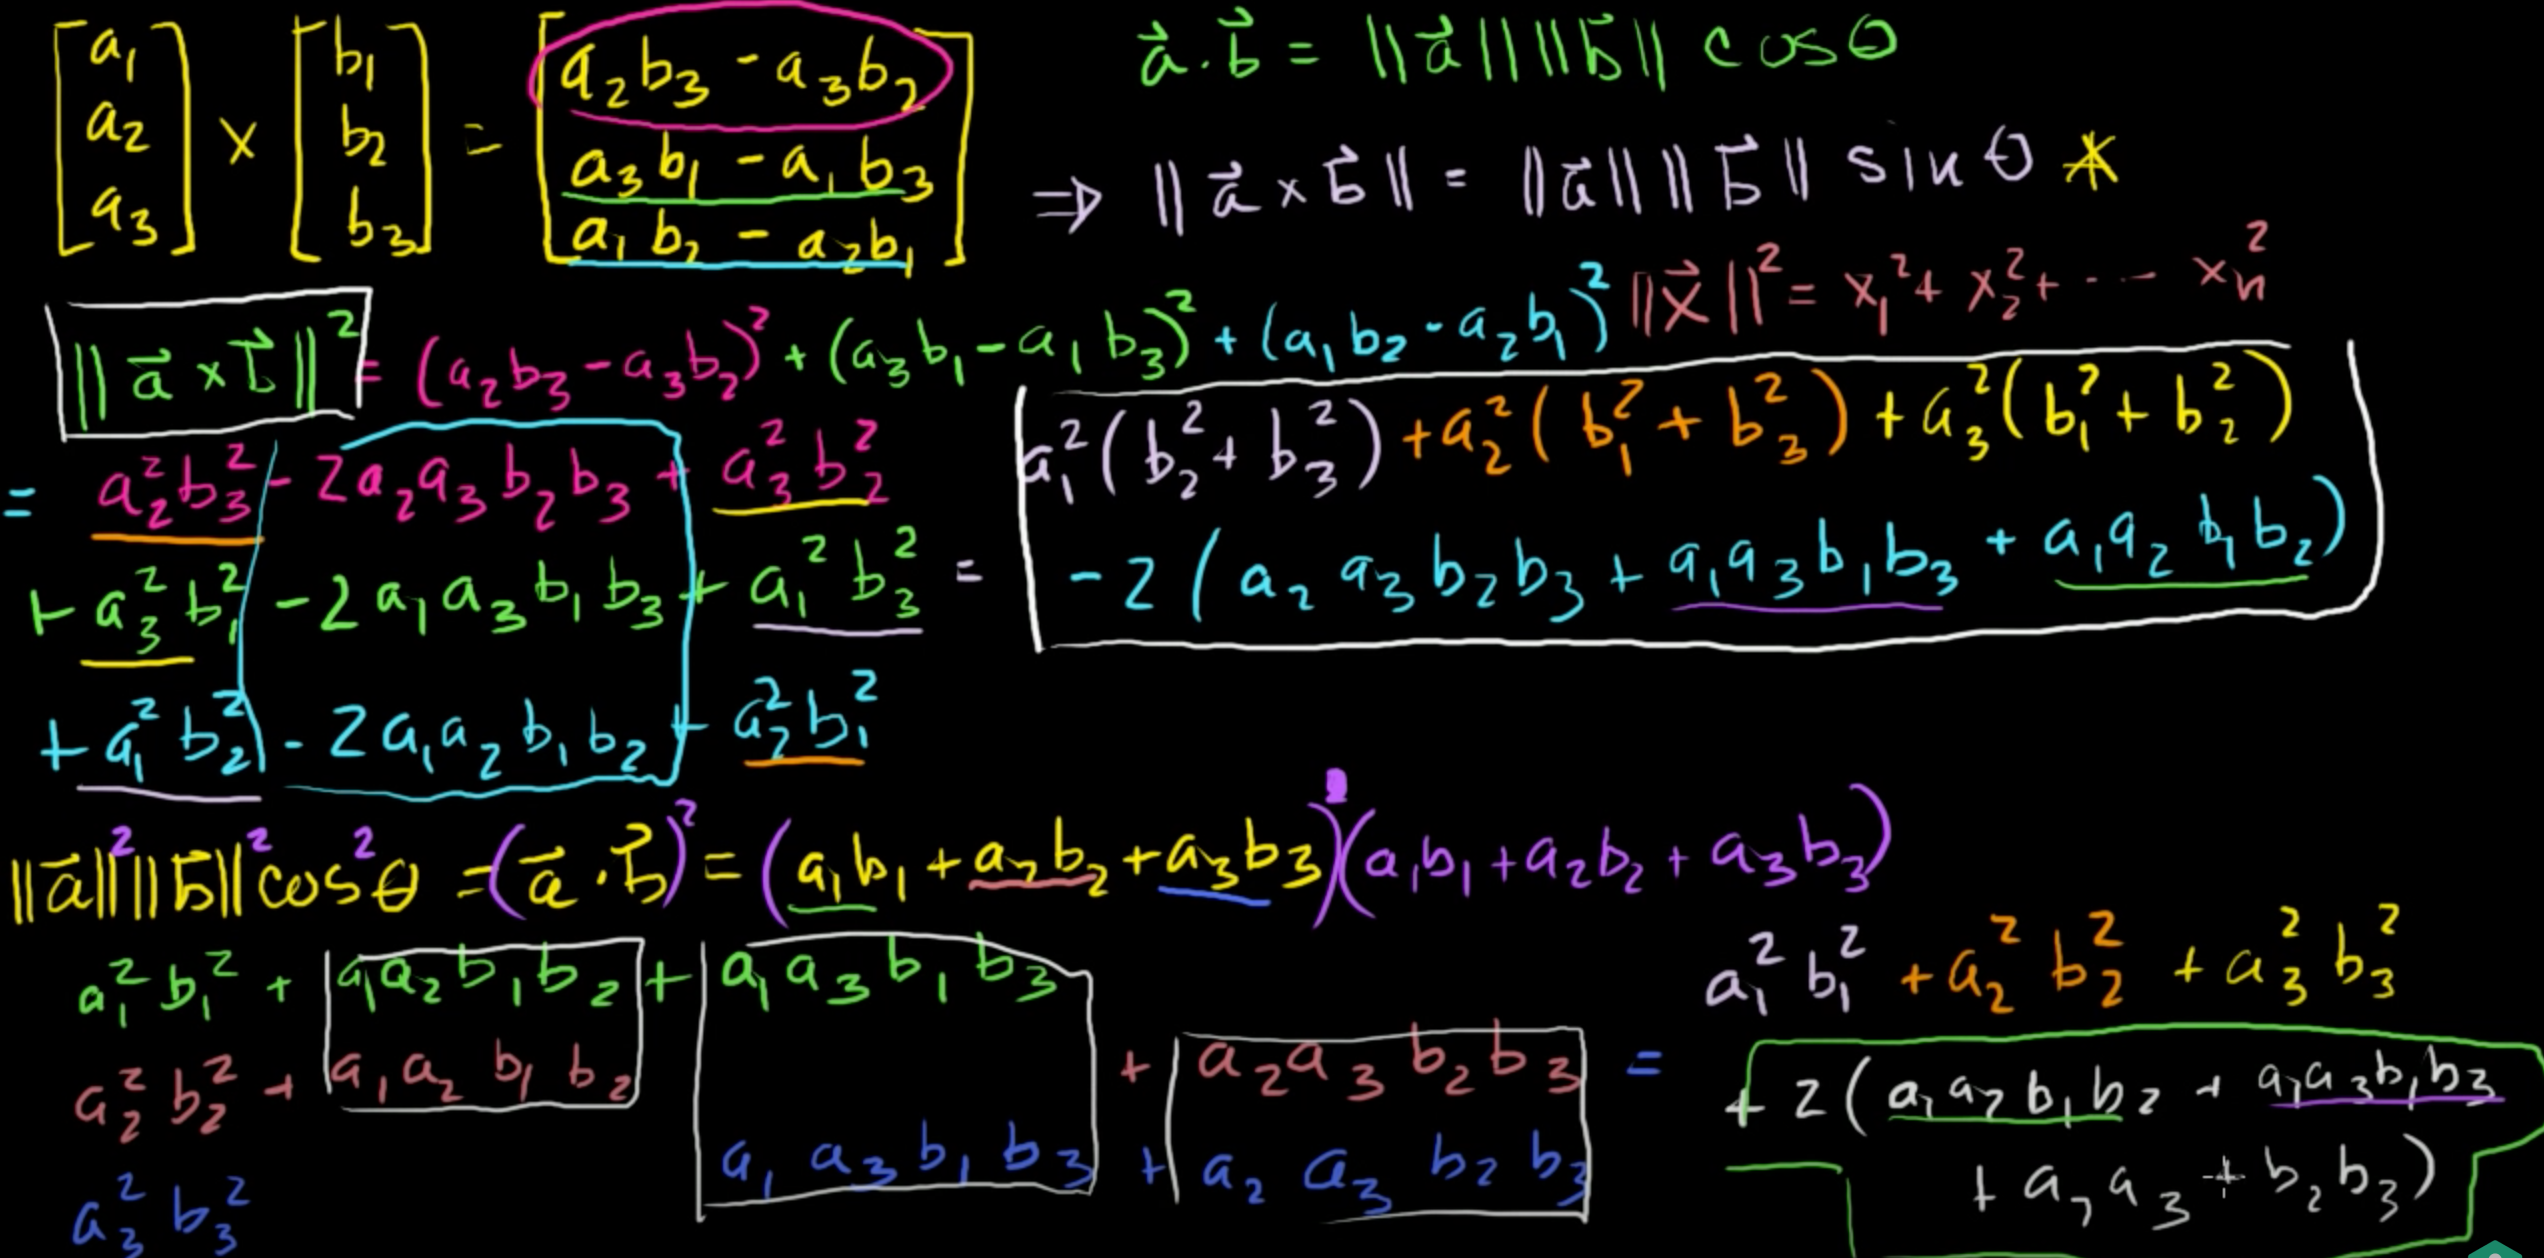 [a₁ a₂ a₃] × [b₁ b₂ b₃] = [a₂b₃ - a₃b₂
a₃b₁ - a₁b₃
a₁b₂ - a₂b₁]
a⃗ · b⃗ = ||a⃗|| ||b⃗|| cos θ
⇒ ||a⃗ × b⃗|| = ||a⃗|| ||b⃗|| sin θ *
||x⃗||² = x₁² + x₂² + ... xₙ²
||a⃗ × b⃗||² = (a₂b₃ - a₃b₂)² + (a₃b₁ - a₁b₃)² + (a₁b₂ - a₂b₁)²
= a₂²b₃² - 2a₂a₃b₂b₃ + a₃²b₂²
+ a₃²b₁² - 2a₁a₃b₁b₃ + a₁²b₃²
+ a₁²b₂² - 2a₁a₂b₁b₂ + a₂²b₁²
= a₁²(b₂² + b₃²) + a₂²(b₁² + b₃²) + a₃²(b₁² + b₂²)
- 2(a₂a₃b₂b₃ + a₁a₃b₁b₃ + a₁a₂b₁b₂)
||a⃗||² ||b⃗||² cos²θ = (a⃗ · b⃗)² = (a₁b₁ + a₂b₂ + a₃b₃)(a₁b₁ + a₂b₂ + a₃b₃)
a₁²b₁² + a₁a₂b₁b₂ + a₁a₃b₁b₃
a₂²b₂² + a₁a₂b₁b₂ + a₂a₃b₂b₃
a₃²b₃² a₁a₃b₁b₃ + a₂a₃b₂b₃
= a₁²b₁² + a₂²b₂² + a₃²b₃²
+ 2(a₁a₂b₁b₂ + a₁a₃b₁b₃
+ a₂a₃ b₂b₃)